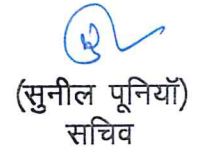 (सुनील पूनियाॅ)
सचिव